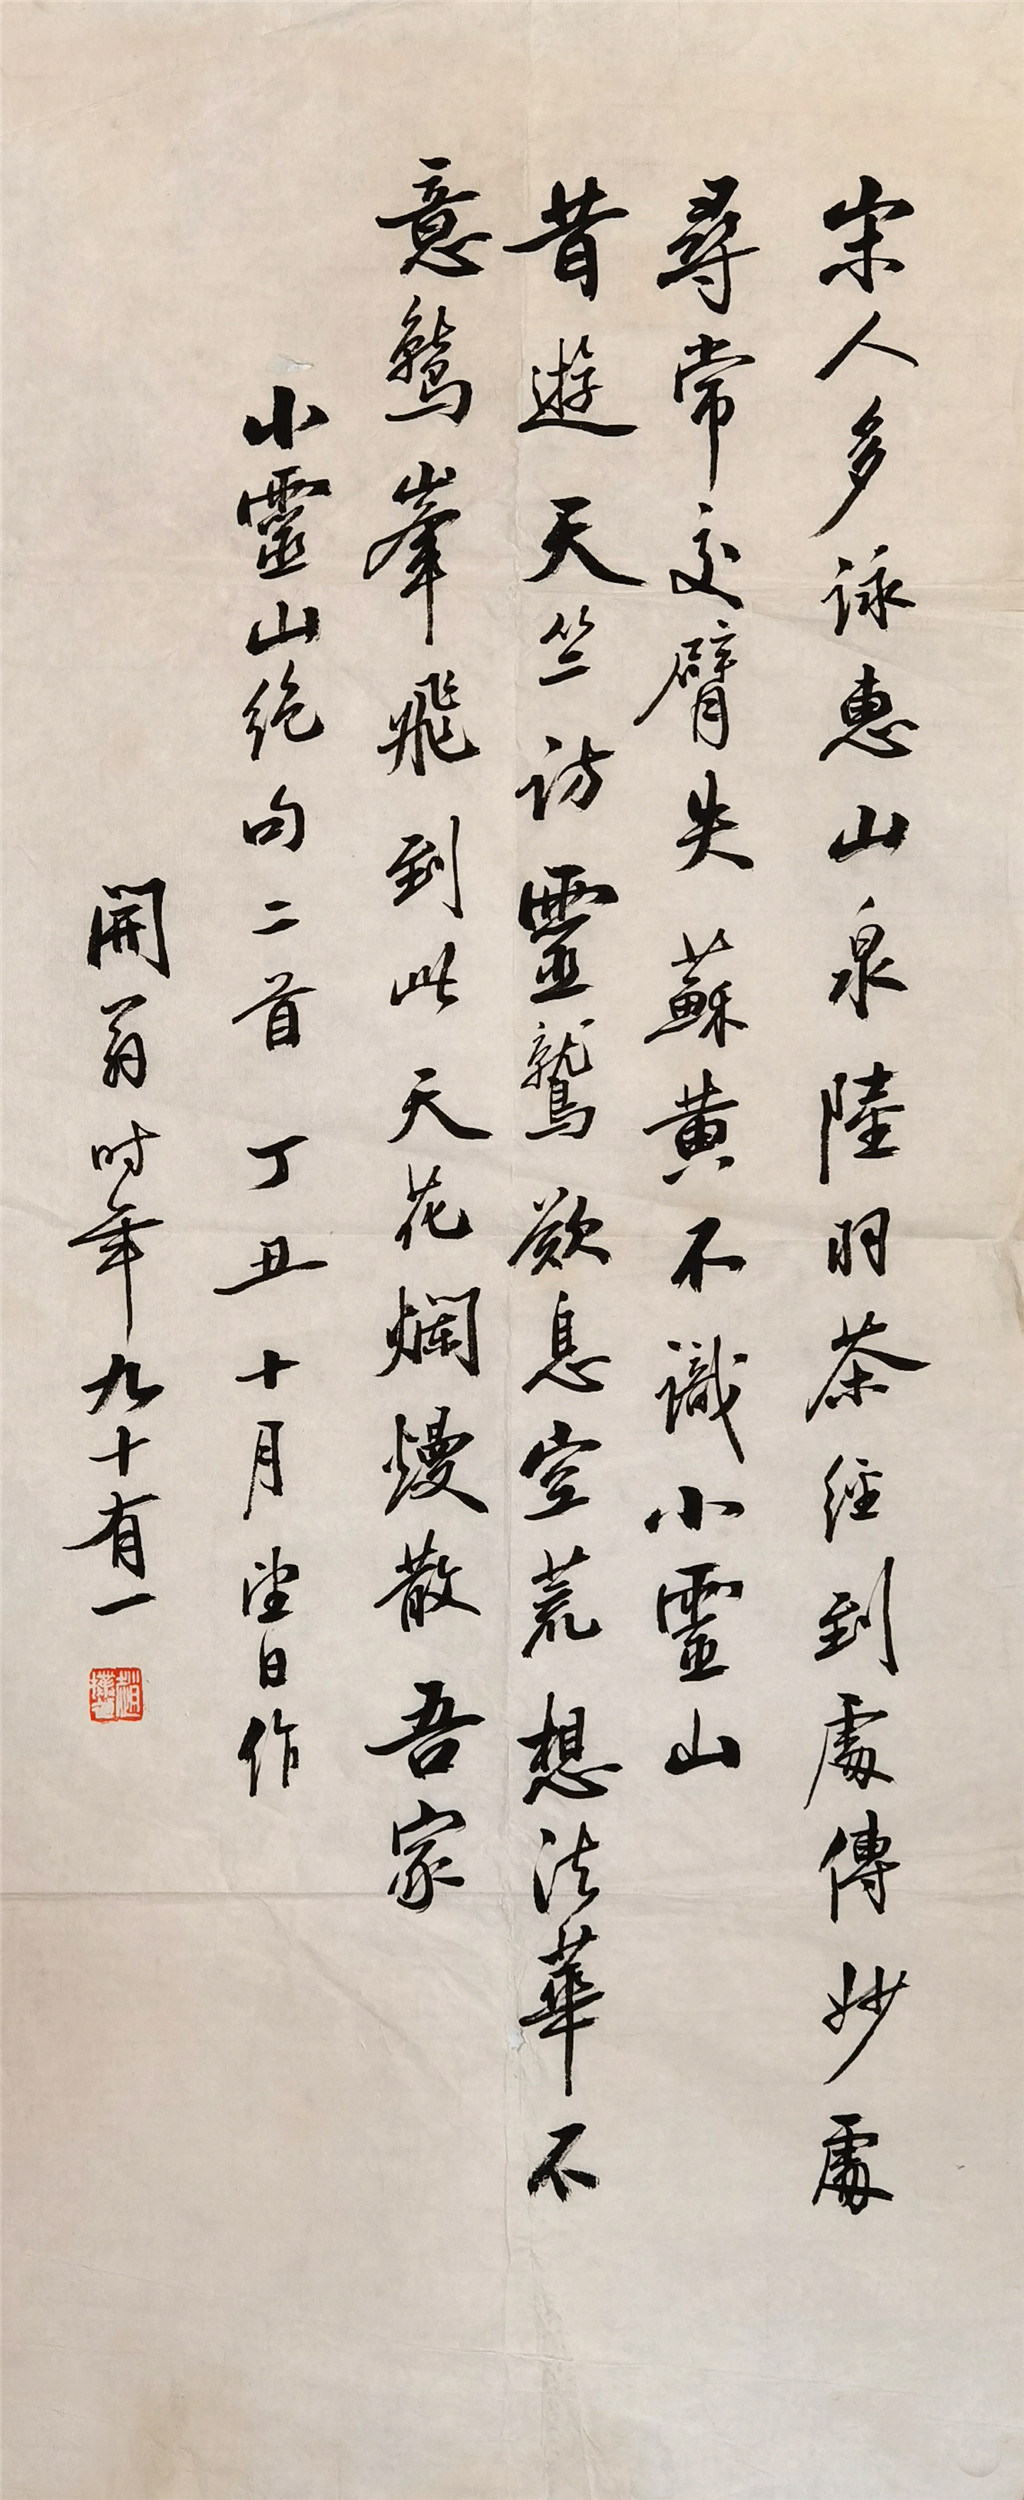 宋人多詠惠山泉陸羽茶經到處傳妙處
尋常交臂失蘇黃不識小靈山
昔遊天竺訪靈鷲欲息空荒想法華不
意鷲峯飛到此天花爛熳散吾家
小靈山絶句二首丁丑十月望日作
開翁时年九十有一